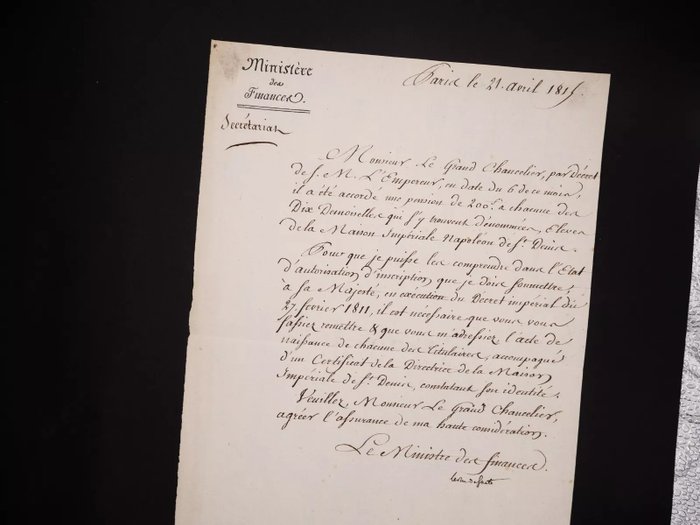 Ministère
des
Finances.
Secrétariat
Paris le 21 avril 1815.
Monsieur Le Grand Chancelier, par Décret
de S. M. L'Empereur, en date du 6 de ce mois,
il a été accordé une pension de 200f. à chacune des
Dix Demoiselles qui s'y trouvent dénommées, Elèves
de la Maison Impériale Napoléon de St. Denis.
Pour que je puisse les comprendre dans l'Etat
d'autorisation d'inscription que je dois soumettre
à Sa Majesté, en exécution du Décret impérial du
27 février 1811, il est nécessaire que vous vous
fassiez remettre & que vous m'adressiez l'acte de
naissance de chacune des titulaires, accompagné
d'un Certificat de la Directrice de la Maison
Impériale de St. Denis, constatant son identité.
Veuillez, Monsieur Le Grand Chancelier,
agréer l'assurance de ma haute considération.
Le Ministre des finances.